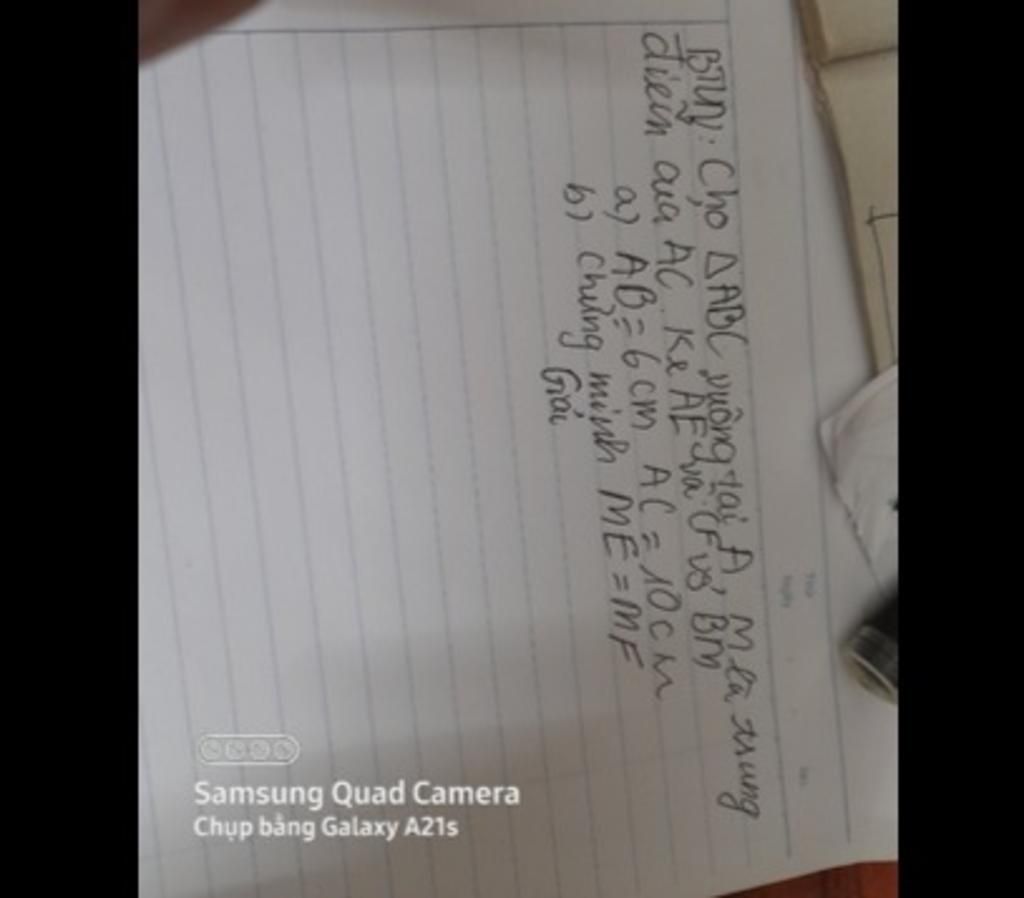 BTVN: Cho ΔABC vuông tại A, M là trung
điểm của AC. Kẻ AE và CF vg BM
a) AB = 6 cm AC = 10 cm
b) Chứng minh ME = MF
Giải
Samsung Quad Camera
Chụp bằng Galaxy A21s